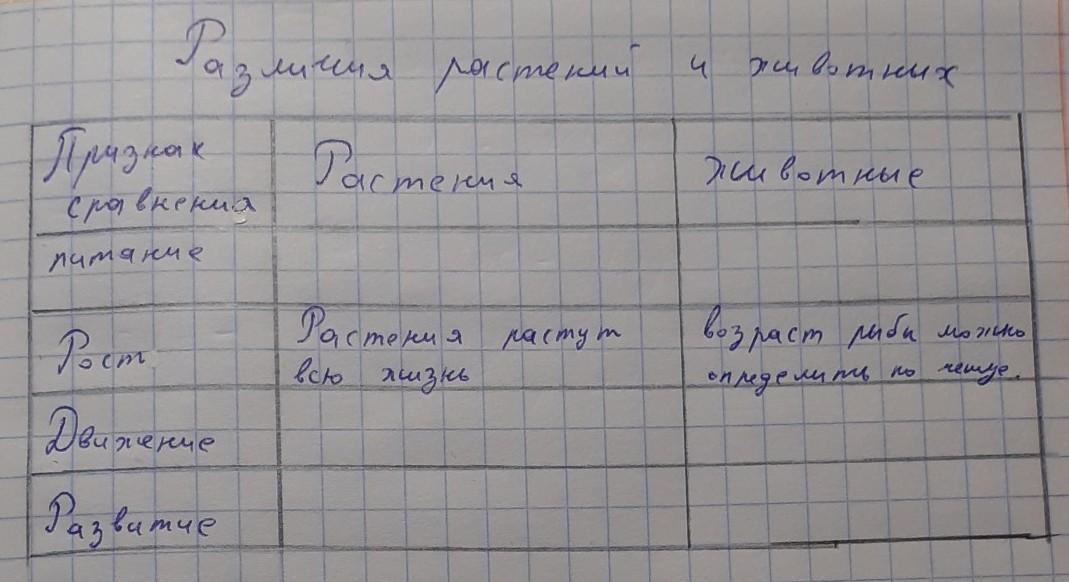 Различия растений и животных
Признак сравнения
Растения
животные
питание
Рост
Растения растут
всю жизнь
возраст рыбы можно
определить по чешуе.
Движение
Развитие